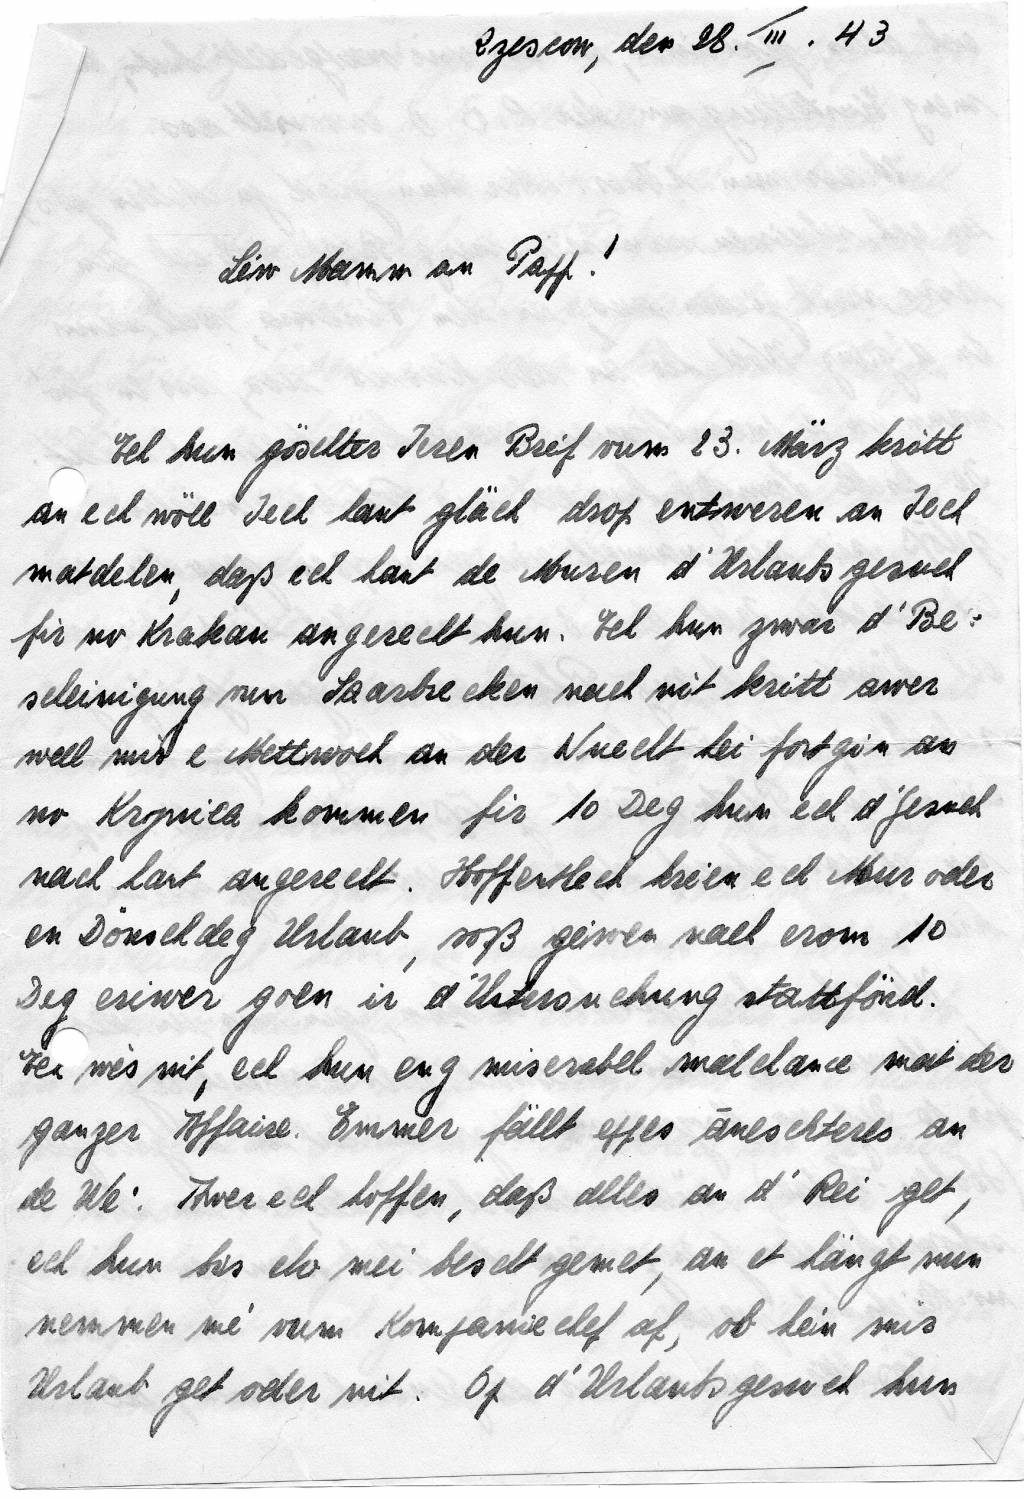 Rzescow, den 28. III. 43
Léiw Mamm an Papp!
Ech hun göschter Ieren Breif vum 23. März kritt
an ech wöll Iech haut gläch drop entweren an Iech
matdelen, daß ech haut de Muren d'Urlaubsgesuch
fir no Krakau angereecht hun. Ech hun zwar d'Be-
scheinigung vun Saarbrecken nach nit kritt awer
well mir e Mettwoch an der Nuecht hei fortgin an
no Krynica kommen fir 10 Deg hun ech d'Gesuch
nach haut angerecht. Hoffentlech krien ech Mur oder
en Dönschdeg Urlaub, soß geiwen nach erom 10
Deg eriwer goen ir d'Untersuchung stattfönd.
Ech wés nit, ech hun eng miserabel malchance mat der
ganzer Affaire. Emmer fällt eppes äneschteres an
de Wé. Awer ech hoffen, daß alles an d'Rei get,
ech hun bis elo mei bescht gemet, an et hängt nun
nemmen mé vum Kompaniechef of, ob hein mir
Urlaub get oder nit. Op d'Urlaubsgesuch hun